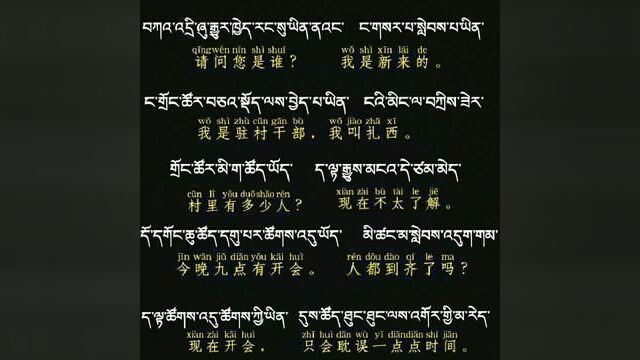 བཀའ་འདྲི་ཞུ་རྒྱུར་ཁྱེད་རང་སུ་ཡིན་ནའང་ ང་གསར་པ་སླེབས་པ་ཡིན་
qǐng wèn nín shì shuí wǒ shì xīn lái de
请问您是谁? 我是新来的。
ང་གྲོང་ཚོར་བཅའ་སྡོད་ལས་བྱེད་པ་ཡིན་ ངའི་མིང་ལ་བཀྲིས་ཟེར་
wǒ shì zhù cūn gān bù wǒ jiào zhā xī
我是驻村干部，我叫扎西。
གྲོང་ཚོར་མི་ག་ཚོད་ཡོད་ ད་ལྟ་རྒྱུས་མངའ་དེ་ཙམ་མེད་
cūn lǐ yǒu duō shǎo rén xiàn zài bù tài le jiě
村里有多少人? 现在不太了解。
དོ་དགོང་ཆུ་ཚོད་དགུ་པར་ཚོགས་འདུ་ཡོད་ མི་ཚང་མ་སླེབས་འདུག་གམ་
jīn wǎn jiǔ diǎn yǒu kāi huì rén dōu dào qí le ma
今晚九点有开会。 人都到齐了吗?
ད་ལྟ་ཚོགས་འདུ་ཚོགས་ཀྱི་ཡིན་ དུས་ཚོད་ཐུང་ཐུང་ལས་འགོར་གྱི་མ་རེད་
xiàn zài kāi huì zhǐ huì dān wù yī diǎn diǎn shí jiān
现在开会， 只会耽误一点点时间。